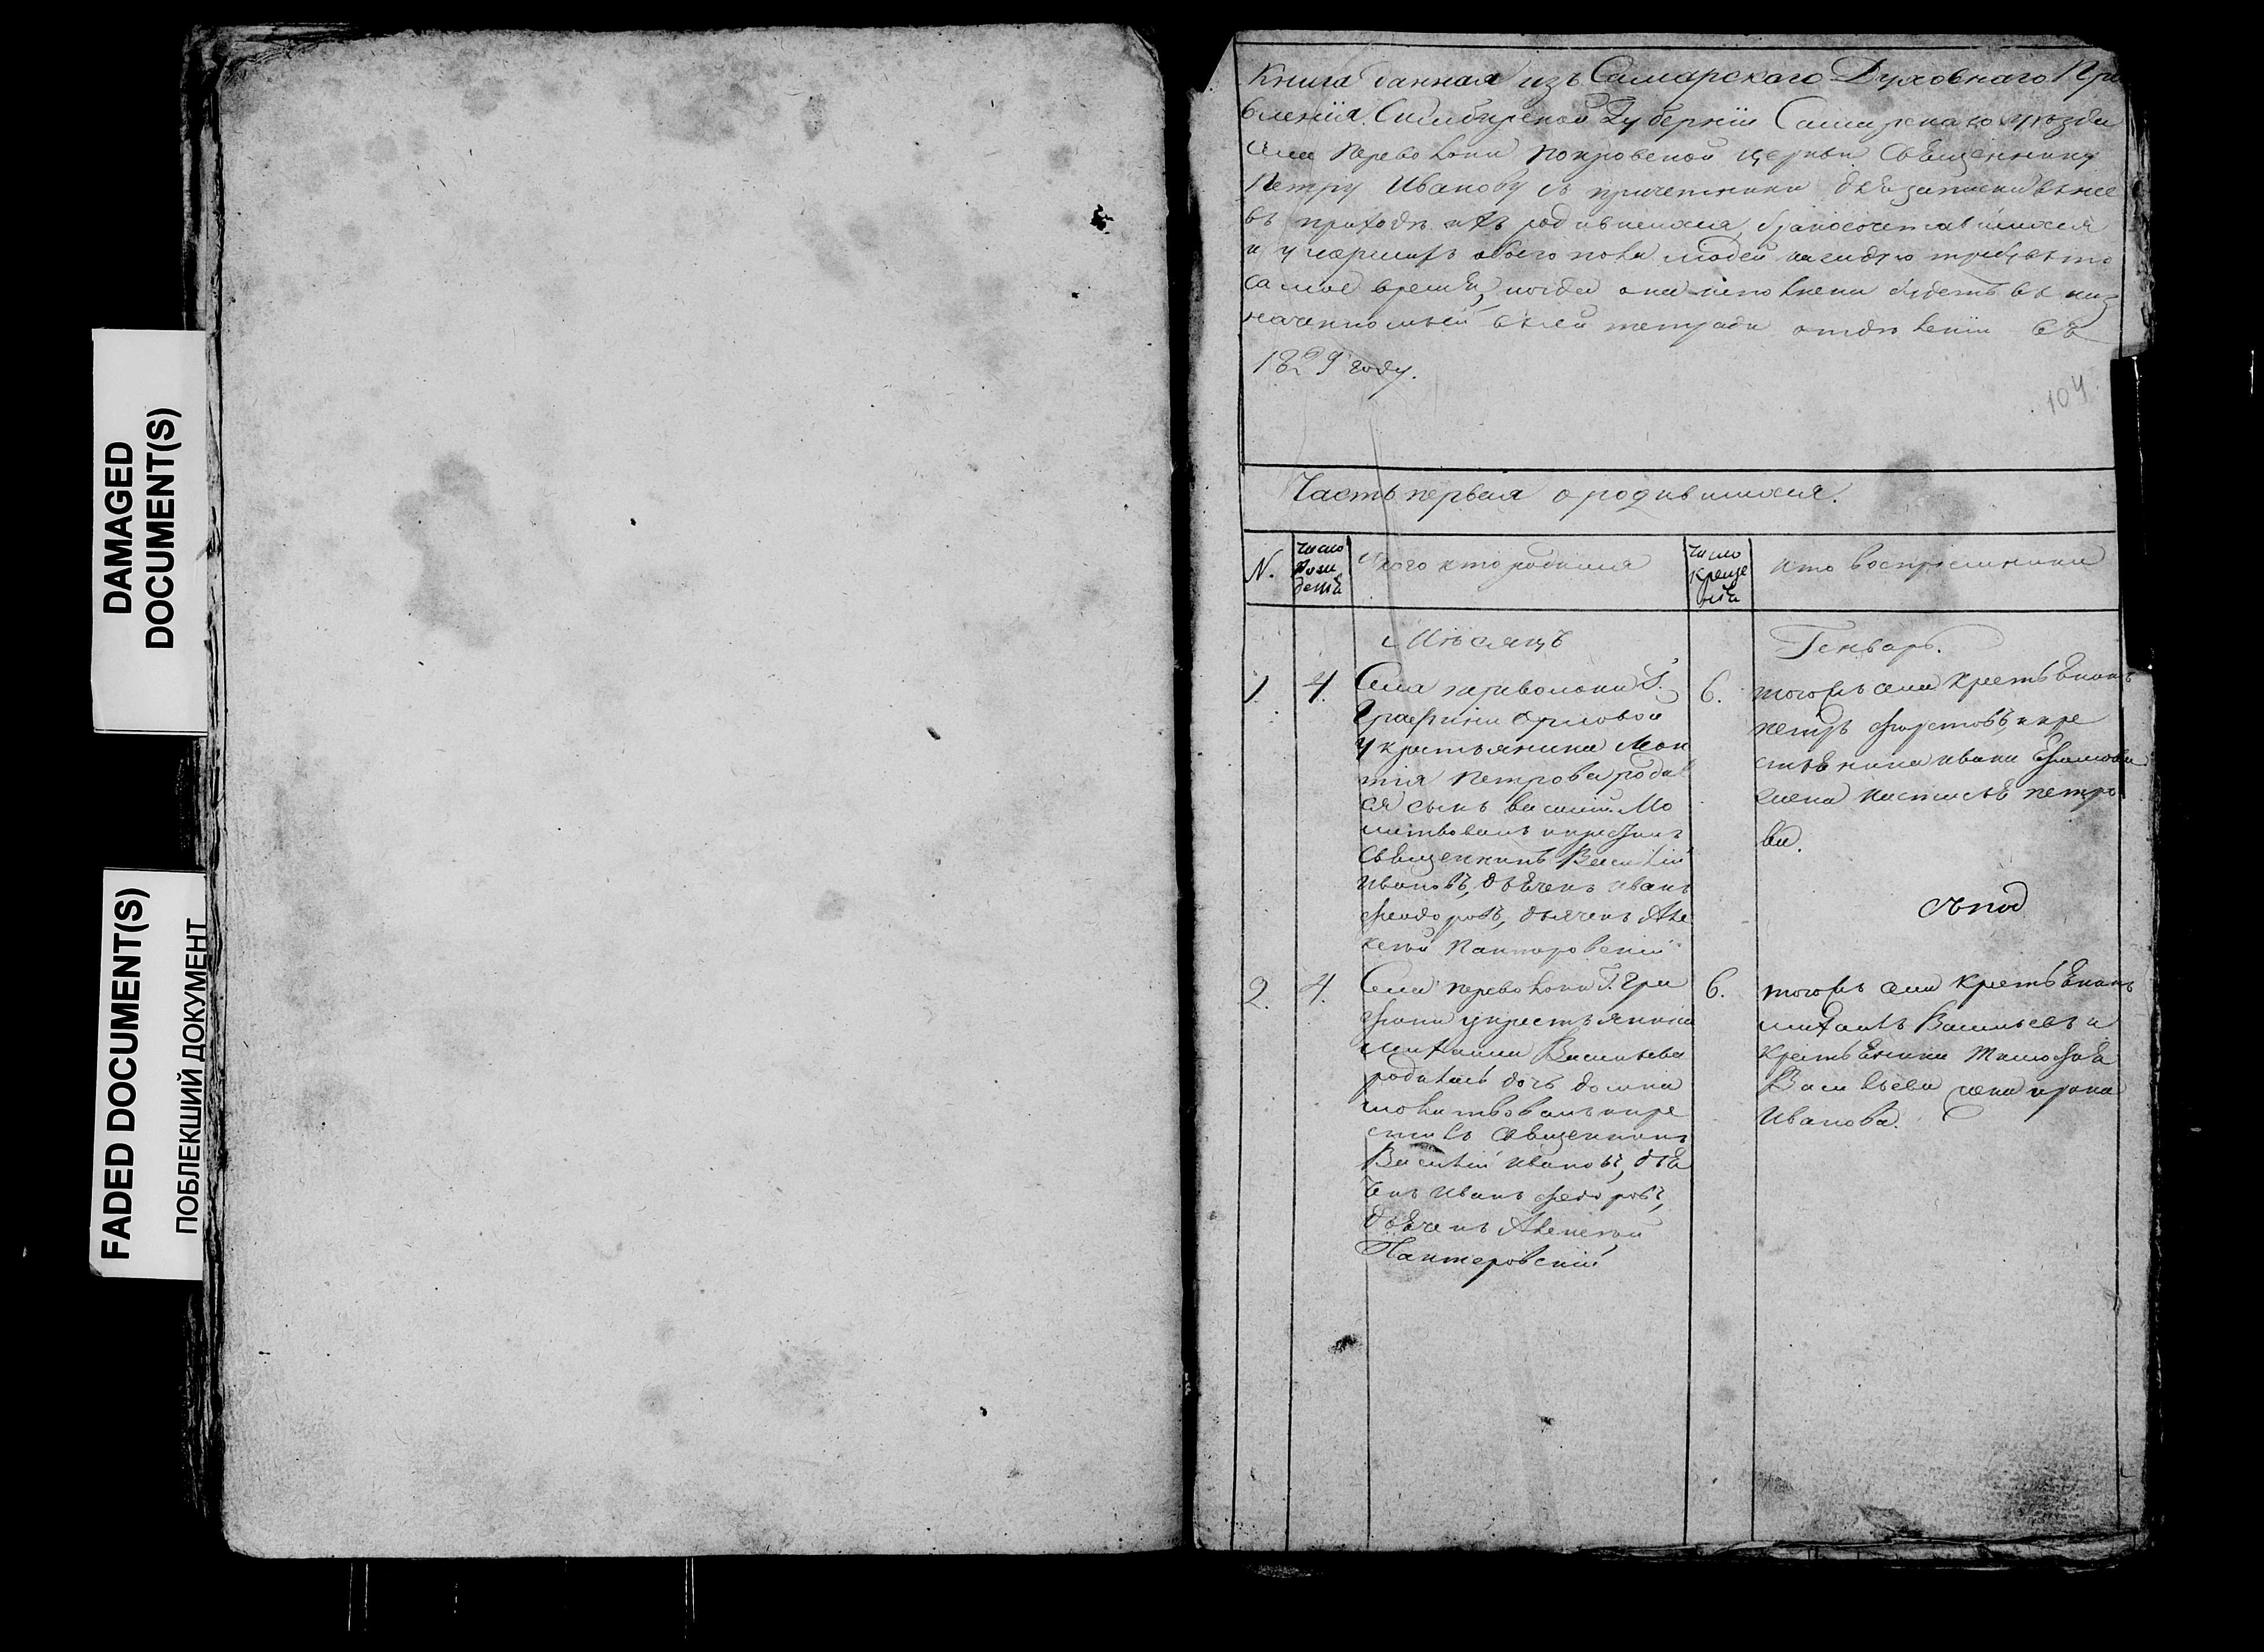 DAMAGED
DOCUMENT(S)
FADED DOCUMENT(S)
ПОБЛЕКШИЙ ДОКУМЕНТ
Книга данная изъ Самарскаго Духовнаго Пра
вленія Симбирской Губерніи Самарскаго уѣзда
села Переволоки покровской церкви Священнику
Петру Иванову съ причетники для записки въ нее
въ приходѣ ихъ родившихся, бракосочетавшихся
и умершихъ обоего пола людей
самое время, когда она исполнена будетъ въ
тетради въ
1829 году.
104
Часть первая о родившихся.
N.
число
рож
денія
У кого кто родился
число
креще
нія
кто воспріемники
Мѣсяцъ
Генварь.
1.
4.
Села переволоки Г.
Графини Орловой
у крестьянина Леон
тія Петрова родил
ся сынъ василій Мо
литвовалъ и крестилъ
Священникъ Василій
Ивановъ, дьячекъ иванъ
феодоровъ, дьячекъ Але
ксѣй Пантеровскій
6.
тогожъ села крестьянинъ
петръ и кре
стьянина ивана Ефимова
жена настасья петро
ва.
2.
4.
Села переволоки Г. Гра
фини у крестьянина
михаила Васильева
родилась дочь домна
молитвовалъ и кре
стилъ священникъ
Василій Ивановъ, дья
чекъ Иванъ федоровъ,
дьячекъ Алексѣй
Пантеровскій
6.
тогожъ села крестьянинъ
михаилъ Васильевъ и
крестьянина тимофея
Васильева жена ирина
Иванова.